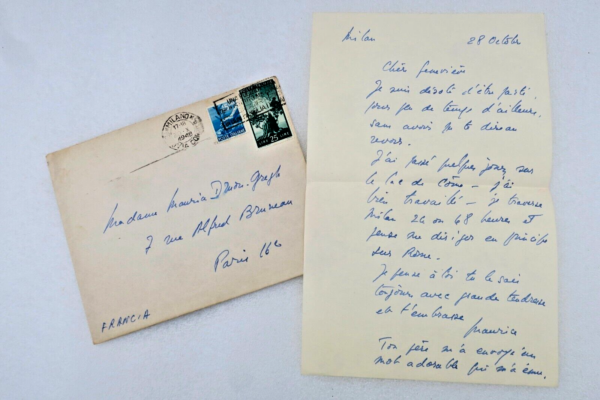 MILANO
25
Madame Maurice Dumon-Gregh
7 rue Alfred Bruneau
Paris 16e
FRANCIA
Milan 28 Octobre
Chère Geneviève
Je suis désolé d'être parti,
pour peu de temps d'ailleurs,
sans avoir pu te dire au
revoir.
J'ai passé quelques jours sur
le Lac de Côme - j'ai
bien travaillé - je traverse
Milan 24 ou 48 heures et
pense me diriger en principe
sur Rome.
Je pense à toi tu le sais
toujours avec grande tendresse
et t'embrasse
Maurice
Ton père m'a envoyé un
mot adorable qui m'a ému.